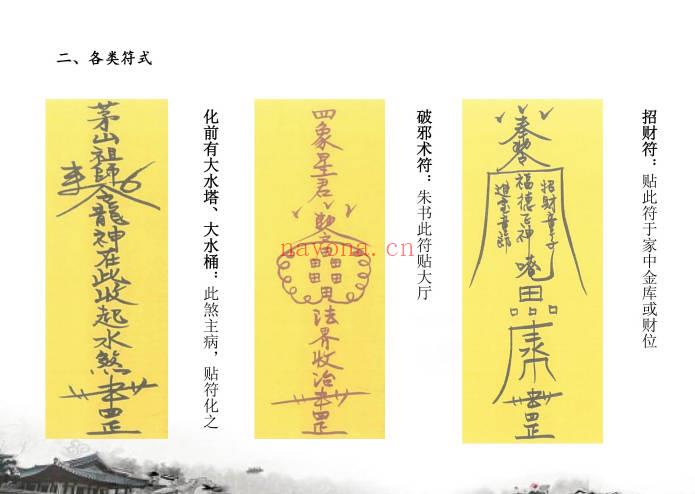 二、各类符式
化前有大水塔、大水桶：此煞主病，贴符化之
茅山祖師
龍神在此收起水煞
罡
破邪术符：朱书此符贴大厅
四象星君
法界收治
罡
招财符：贴此符于家中金库或财位
奉
福德正神
招財童子
進宝童郎
罡
nayona.cn